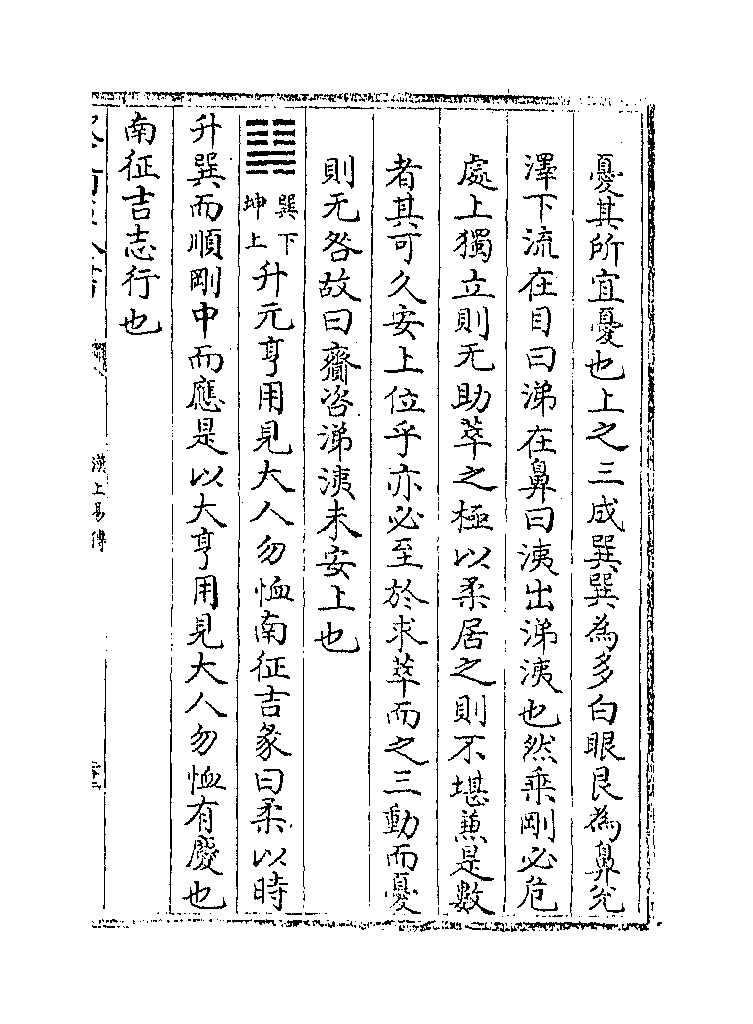 憂其所宜憂也上之三成巽巽為多白眼艮為鼻兊
澤下流在目曰涕在鼻曰洟出涕洟也然乘剛必危
處上獨立則无助萃之極以柔居之則不堪兼是數
者其可久安上位乎亦必至於求萃而之三動而憂
則无咎故曰齎咨涕洟未安上也
䷭巽下坤上升元亨用見大人勿恤南征吉彖曰柔以時
升巽而順剛中而應是以大亨用見大人勿恤有慶也
南征吉志行也
漢上易傳